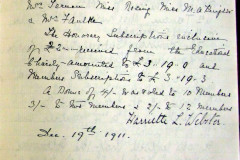 Mrs Vernon Miss Noeing Miss M. A. Taylor
& Mrs Faulkner
The Honorary Subscriptions exclusive
of £2 received from the Elocution
Charity amounted to £3-19-0 and
Members Subscriptions to £3-19-3
A Bonus of 4/- was voted to 10 Members
3/- to two members & 2/- to 12 members
Harriette L. Webster
Dec. 19th 1911.